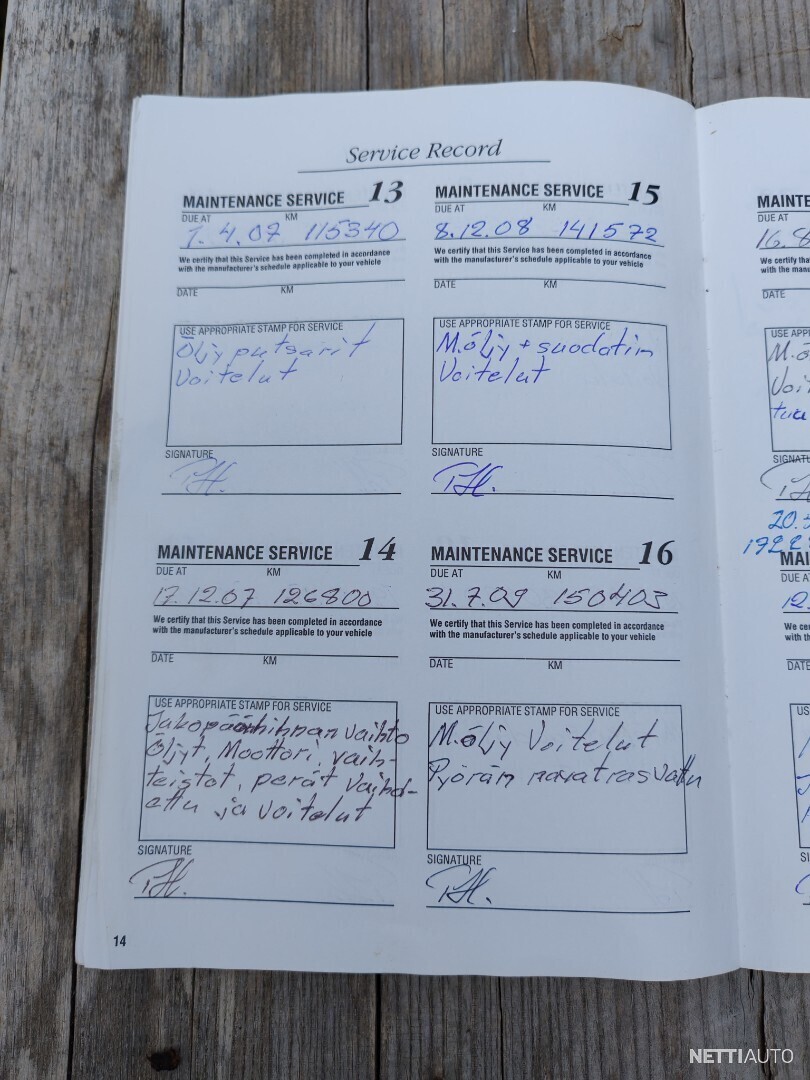 Service Record
MAINTENANCE SERVICE 13
DUE AT KM
7. 4.07 115340
We certify that this Service has been completed in accordance
with the manufacturer's schedule applicable to your vehicle
DATE KM
USE APPROPRIATE STAMP FOR SERVICE
Öljy putsarit
Voitelut
SIGNATURE
MAINTENANCE SERVICE 14
DUE AT KM
17.12.07 126800
We certify that this Service has been completed in accordance
with the manufacturer's schedule applicable to your vehicle
DATE KM
USE APPROPRIATE STAMP FOR SERVICE
Jakopäänhihnan vaihto
Öljyt, Moottori, vaih-
teistot, perät vaihd-
ettu ja voitelut
SIGNATURE
MAINTENANCE SERVICE 15
DUE AT KM
8.12.08 141572
We certify that this Service has been completed in accordance
with the manufacturer's schedule applicable to your vehicle
DATE KM
USE APPROPRIATE STAMP FOR SERVICE
M.öljy + suodatin
Voitelut
SIGNATURE
MAINTENANCE SERVICE 16
DUE AT KM
31.7.09 150403
We certify that this Service has been completed in accordance
with the manufacturer's schedule applicable to your vehicle
DATE KM
USE APPROPRIATE STAMP FOR SERVICE
M.öljy Voitelut
Pyörän navat rasvattu
SIGNATURE
14
MAINTE
DUE AT
16.8
We certify tha
with the manu
DATE
USE APP
M.ö
Voi
SIGNATU
20.
1922
MAI
DUE AT
12.
We cer
with the
DATE
US
SI
NETTIAUTO